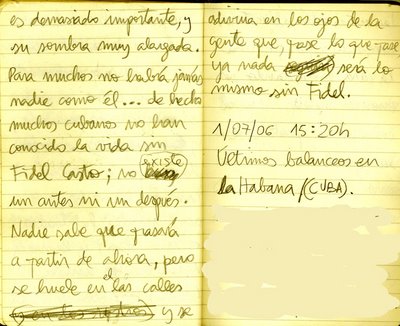 es demasiado importante, y
su sombra muy alargada.
Para muchos no habrá jamás
nadie como él... de hecho
muchos cubanos no han
conocido la vida sin
existe
Fidel Castro; no
un antes ni un después.
Nadie sabe que pasará
a partir de ahora, pero
él
se huele en las calles
(y en los rostros) y se
adivina en los ojos de la
gente que, pase lo que pase,
ya nada será lo
mismo sin Fidel.
1/07/06 15:20h
Últimos balanceos en
la Habana, (CUBA).